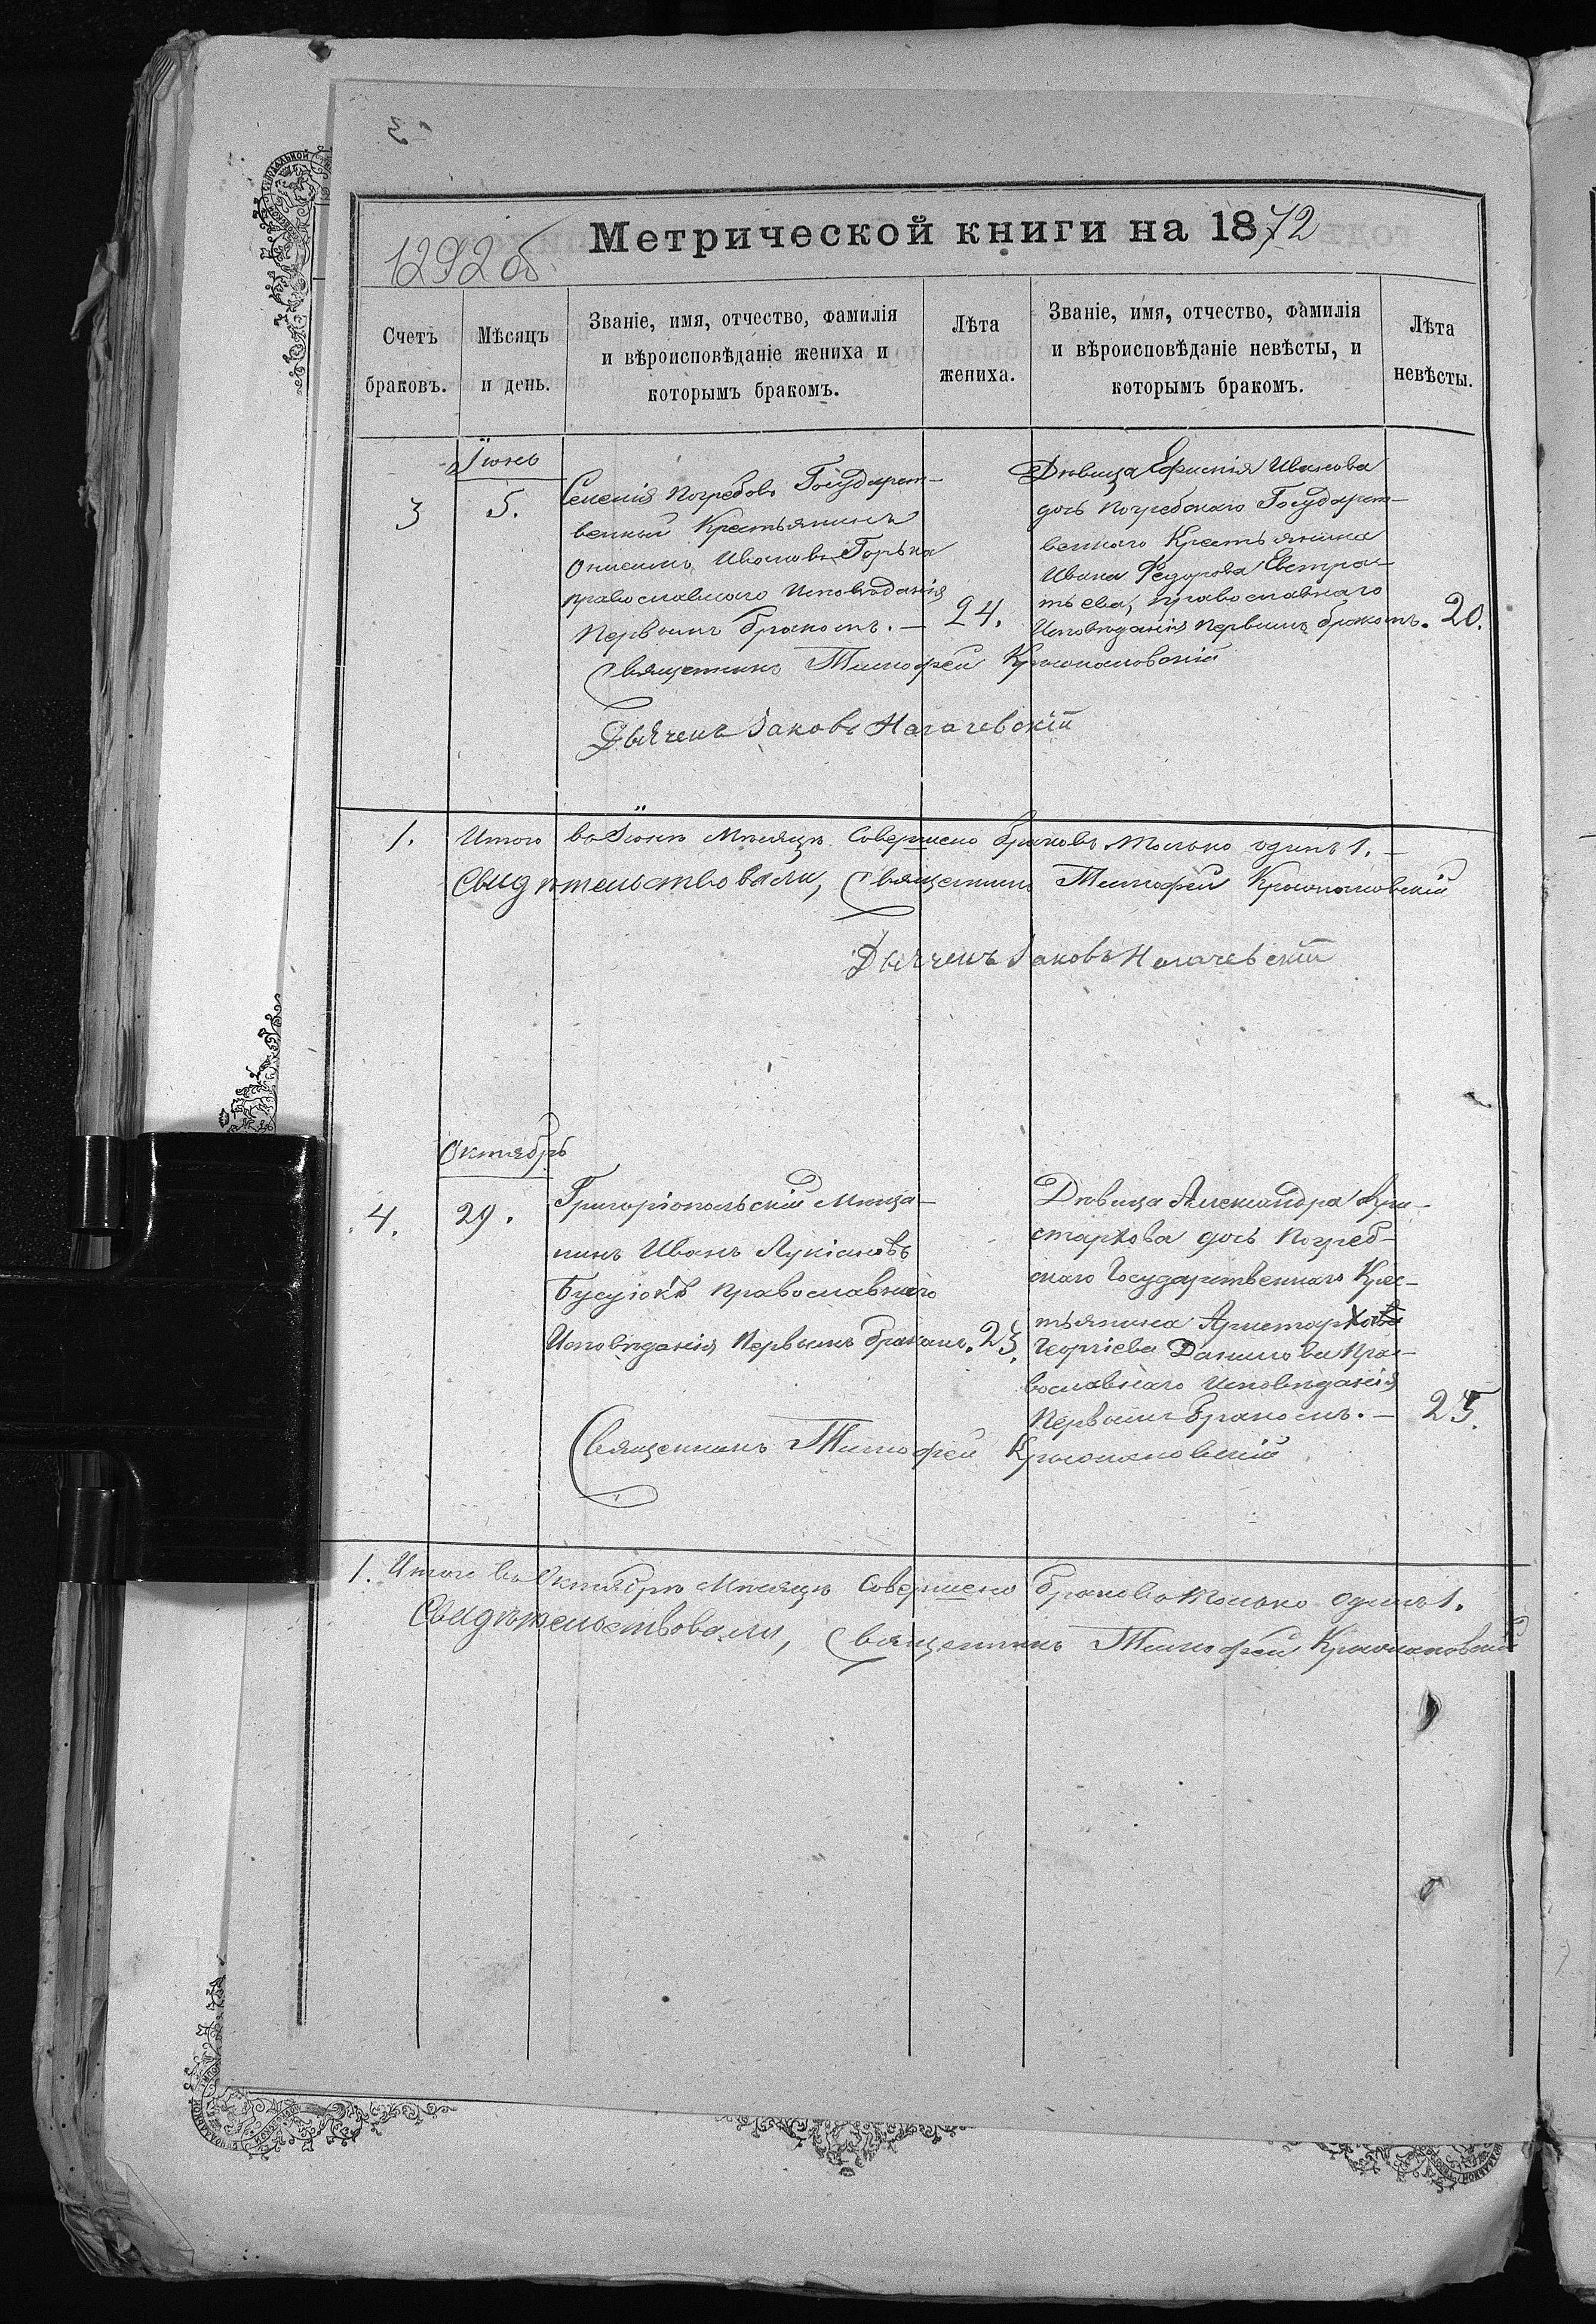 3
1292 об.
Метрической книги на 1872
Счетъ браковъ.
Мѣсяцъ и день.
Званіе, имя, отчество, фамилія
и вѣроисповѣданіе жениха и
которымъ бракомъ.
Лѣта
жениха.
Званіе, имя, отчество, фамилія
и вѣроисповѣданіе невѣсты, и
которымъ бракомъ.
Лѣта
невѣсты.
Іюнь
3
5.
Селенія Погребовъ Государст-
венный Крестьянинъ
Онисимъ Ивановъ Горька
православнаго Исповѣданія
Первымъ бракомъ. —
24.
Дѣвица Ефимія Иванова
дочь Погребскаго Государст-
веннаго Крестьянина
Ивана Федорова Евстра-
тьева, православнаго
Исповѣданія Первымъ бракомъ.
20.
Священникъ Тимофей
Дьячекъ Іаковъ Нагачевскій
1.
Итого въ Іюнѣ Мѣсяцѣ Совершено браковъ только одинъ 1. —
Свидѣтельствовали, Священникъ Тимофей
Дьячекъ Іаковъ Нагачевскій
Октябрь
4.
29.
Григоріопольскій Мѣща-
нинъ Иванъ Лукіановъ
Бусуіокъ Православнаго
Исповѣданія Первымъ бракомъ.
23.
Дѣвица Александра Ари-
стархова дочь Погреб-
скаго Государственнаго Крес-
тьянина Аристарха
Георгіева Данилова Пра-
вославнаго Исповѣданія
Первымъ бракомъ. —
25.
Священникъ Тимофей
1. Итого въ Октябрѣ Мѣсяцѣ Совершено браковъ только одинъ 1.
Свидѣтельствовали, Священникъ Тимофей